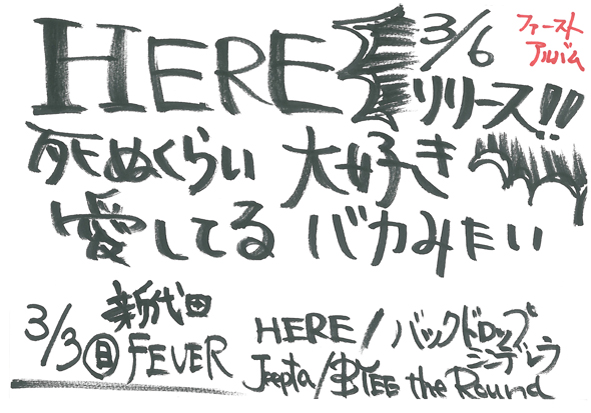 HERE 3/6 ファースト
アルバム
リリース!!
死ぬくらい 大好き
愛してる バカみたい
3/3㊐ 新代田
FEVER
HERE / バックドロップ
シンデレラ
Jeepta / BYEE the Round